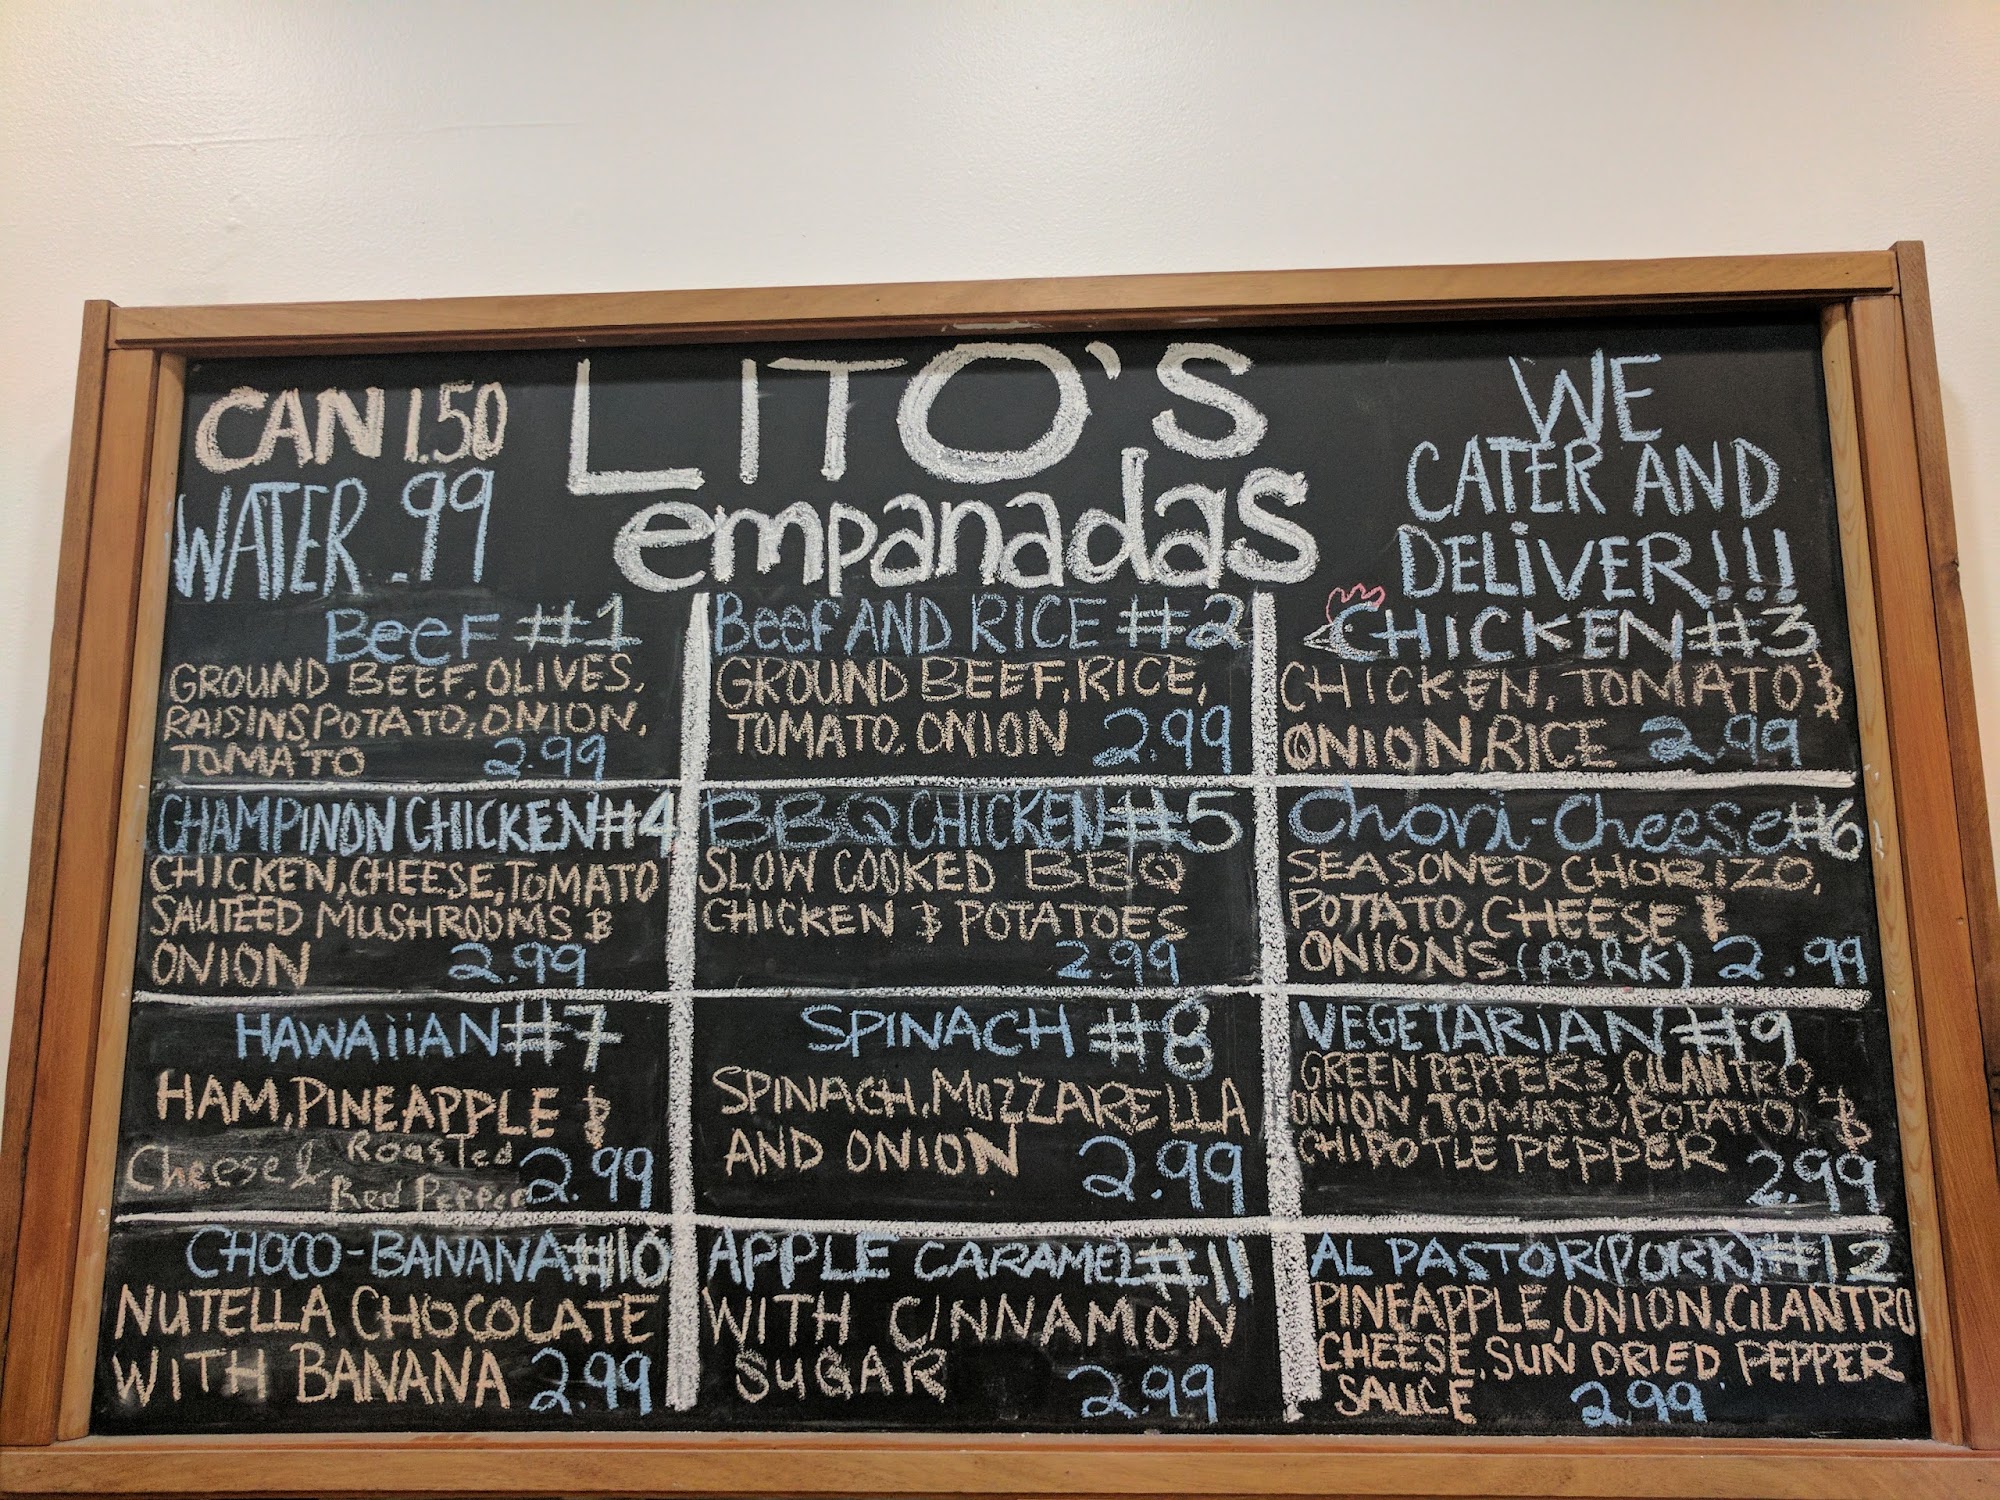 CAN 1.50
WATER .99
LITO'S
empanadas
WE
CATER AND
DELIVER!!!
BeeF #1
GROUND BEEF, OLIVES,
RAISINS, POTATO, ONION,
TOMATO 2.99
BeeF AND RICE #2
GROUND BEEF, RICE,
TOMATO, ONION 2.99
CHICKEN #3
CHICKEN, TOMATO &
ONION, RICE 2.99
CHAMPINON CHICKEN #4
CHICKEN, CHEESE, TOMATO
SAUTEED MUSHROOMS &
ONION 2.99
BBQ CHICKEN #5
SLOW COOKED BBQ
CHICKEN & POTATOES
2.99
Chori-Cheese #6
SEASONED CHORIZO,
POTATO, CHEESE &
ONIONS (PORK) 2.99
HAWAiiAN #7
HAM, PINEAPPLE &
Cheese & Roasted
Red Pepper 2.99
SPINACH #8
SPINACH, MOZZARELLA
AND ONION 2.99
VEGETARIAN #9
GREEN PEPPERS, CILANTRO,
ONION, TOMATO, POTATO, &
CHIPOTLE PEPPER
2.99
CHOCO-BANANA #10
NUTELLA CHOCOLATE
WITH BANANA 2.99
APPLE CARAMEL #11
WITH CINNAMON
SUGAR 2.99
AL PASTOR (PORK) #12
PINEAPPLE, ONION, CILANTRO
CHEESE, SUN DRIED PEPPER
SAUCE 2.99